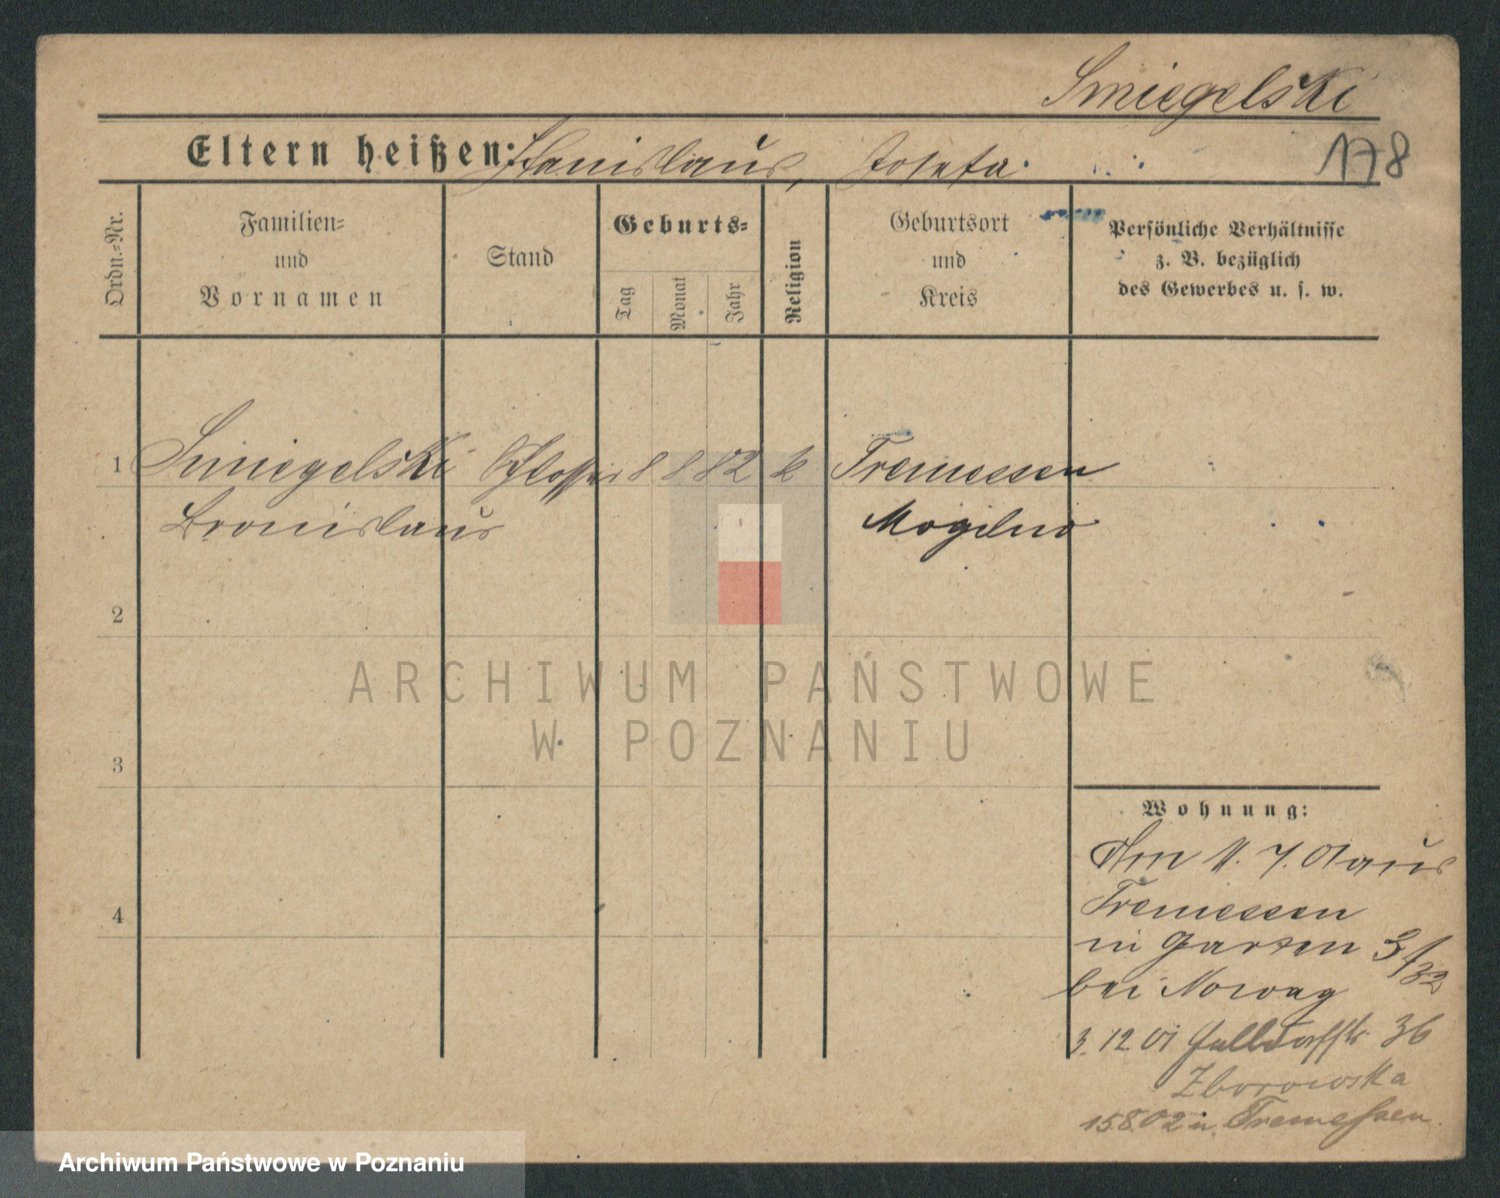 Smiegelski
Eltern heißen: Stanislaus, Josefa.
178
Ordn.=Nr.
Familien=
und
Vornamen
Stand
Geburts=
Tag
Monat
Jahr
Religion
Geburtsort
und
Kreis
Persönliche Verhältnisse
z. B. bezüglich
des Gewerbes u. s. w.
1 Smiegelski Schlosser 8 8 82 k Tremessen
Bronislaus Mogilno
2
3
4
ARCHIWUM PAŃSTWOWE
W POZNANIU
Wohnung:
Tremessen
in Garten
bei Nowag
3. 12 01 36
Zborowska
15.8.02 n. Tremessen
Archiwum Państwowe w Poznaniu